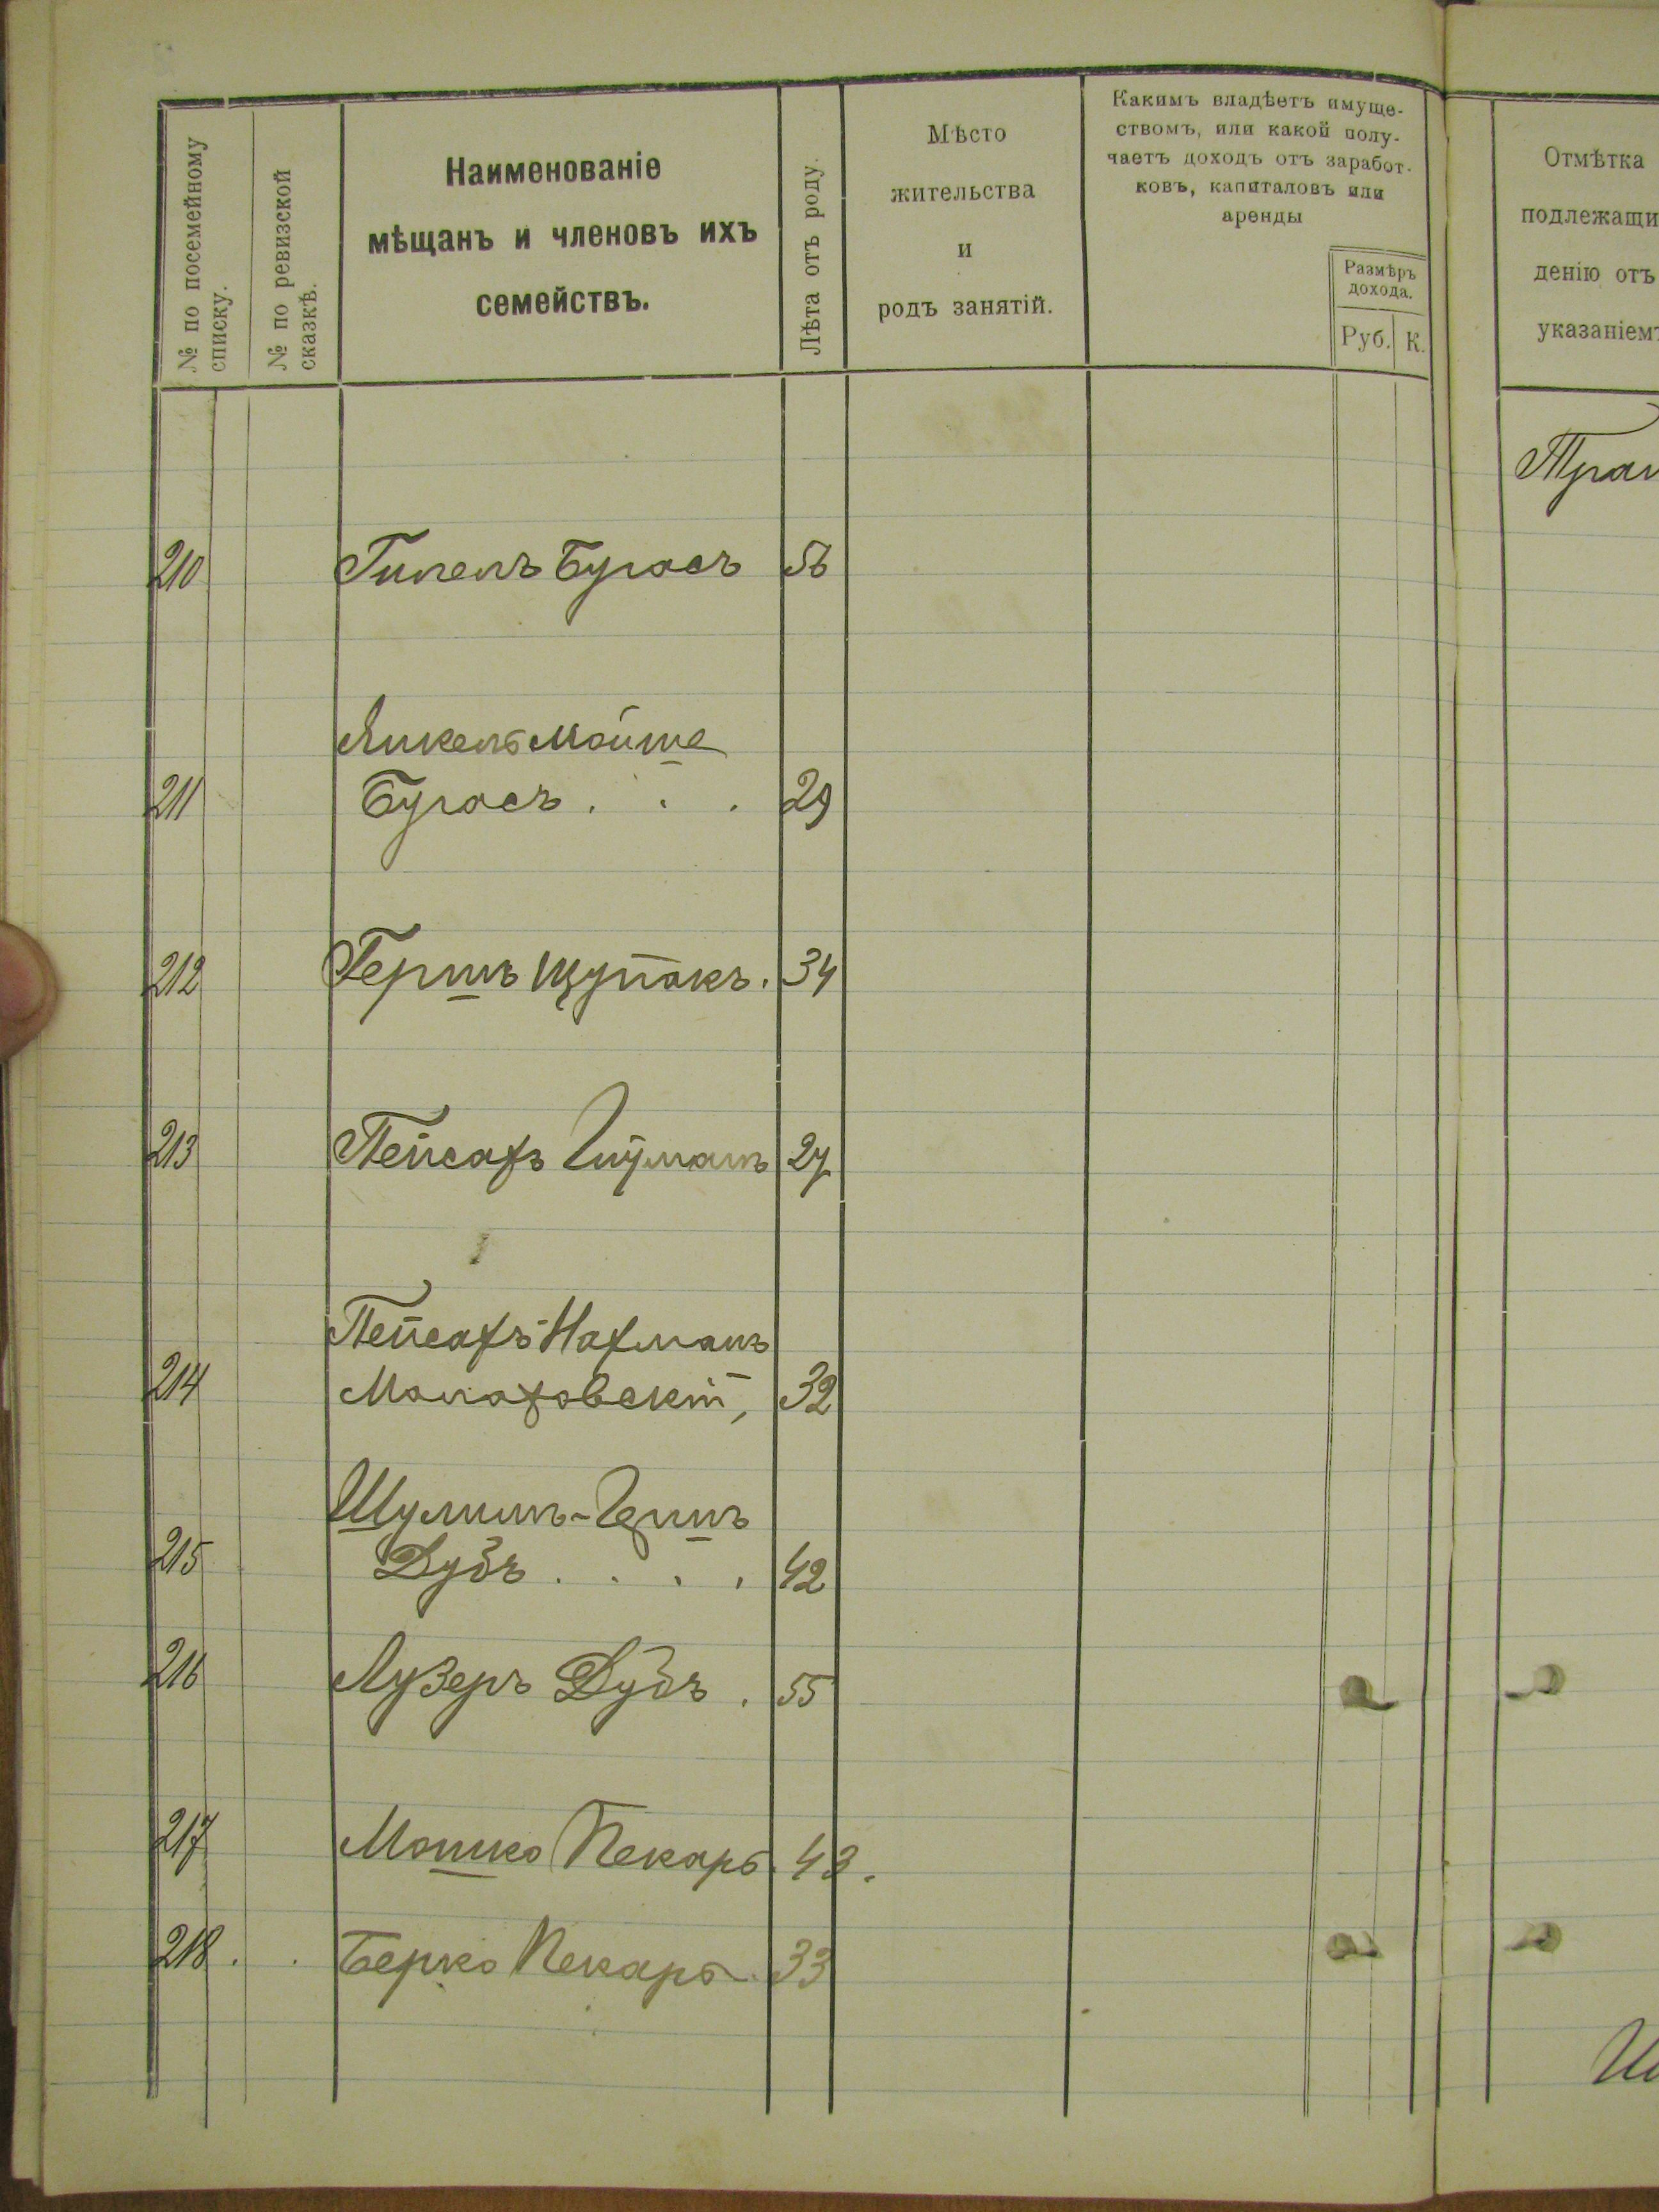 № по посемейному
списку.
№ по ревизской
сказкѣ.
Наименованіе
мѣщанъ и членовъ ихъ
семействъ.
Лѣта отъ роду.
Мѣсто
жительства
и
родъ занятій.
Какимъ владѣетъ имуще-
ствомъ, или какой полу-
чаетъ доходъ отъ заработ-
ковъ, капиталовъ или
аренды
Размѣръ
дохода.
Руб. К.
Отмѣтка
подлежащи
денію отъ
указаніемъ
210 Гилелъ Бугасъ 56
Янкель Мойше
211 Бугасъ . . . 29
212 Гершъ Щупакъ. 34
213 Пейсахъ Гитманъ 27
Пейсахъ-Нахманъ
214 Малаховскій, 32
Шулимъ-Гершъ
215 Дубъ . . . . 42
216 Лузеръ Дубъ . 55
217 Мошко Пекарь. 43.
218 . . Берко Пекарь. 33